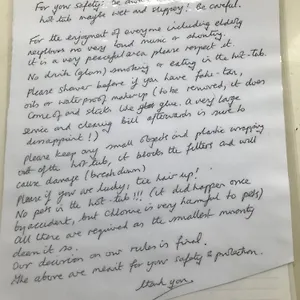 For your safety: be
hot-tub maybe wet and slippery! Be careful.
For the enjoyment of everyone including elderly
neighbours no very loud music or shouting.
it is a very peaceful area please respect it.
No drink (glass) smoking or eating in the hot-tub.
Please shower before if you have fake-tan,
oils or waterproof makeup (to be removed, it does
come off and sticks like glue. A very large
service and cleaning bill afterwards is sure to
dissappoint!)
Please keep any small objects and plastic wrapping
out of the hot tub, it blocks the filters and will
cause damage (breakdown)
Please if you are lucky, tie hair up!
No pets in the hot-tub!!! (it did happen once
by accident, but chlorine is very harmful to pets)
All these are required as the smallest minority
deem it so.
Our decision on our rules is final.
The above are meant for your safety & protection.
Thank you.